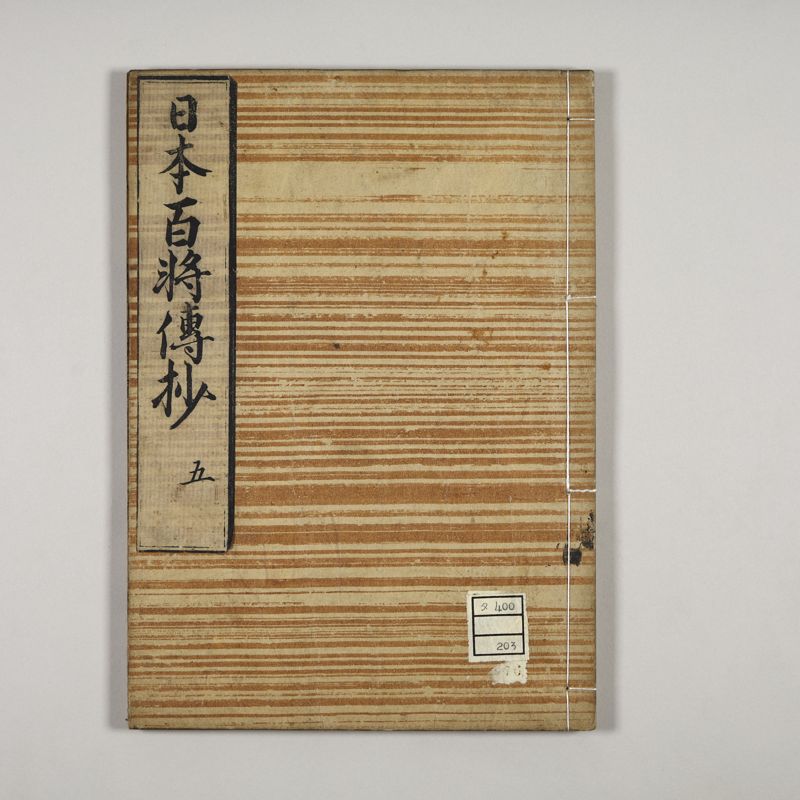 日本百将傳抄
五
タ 400
203